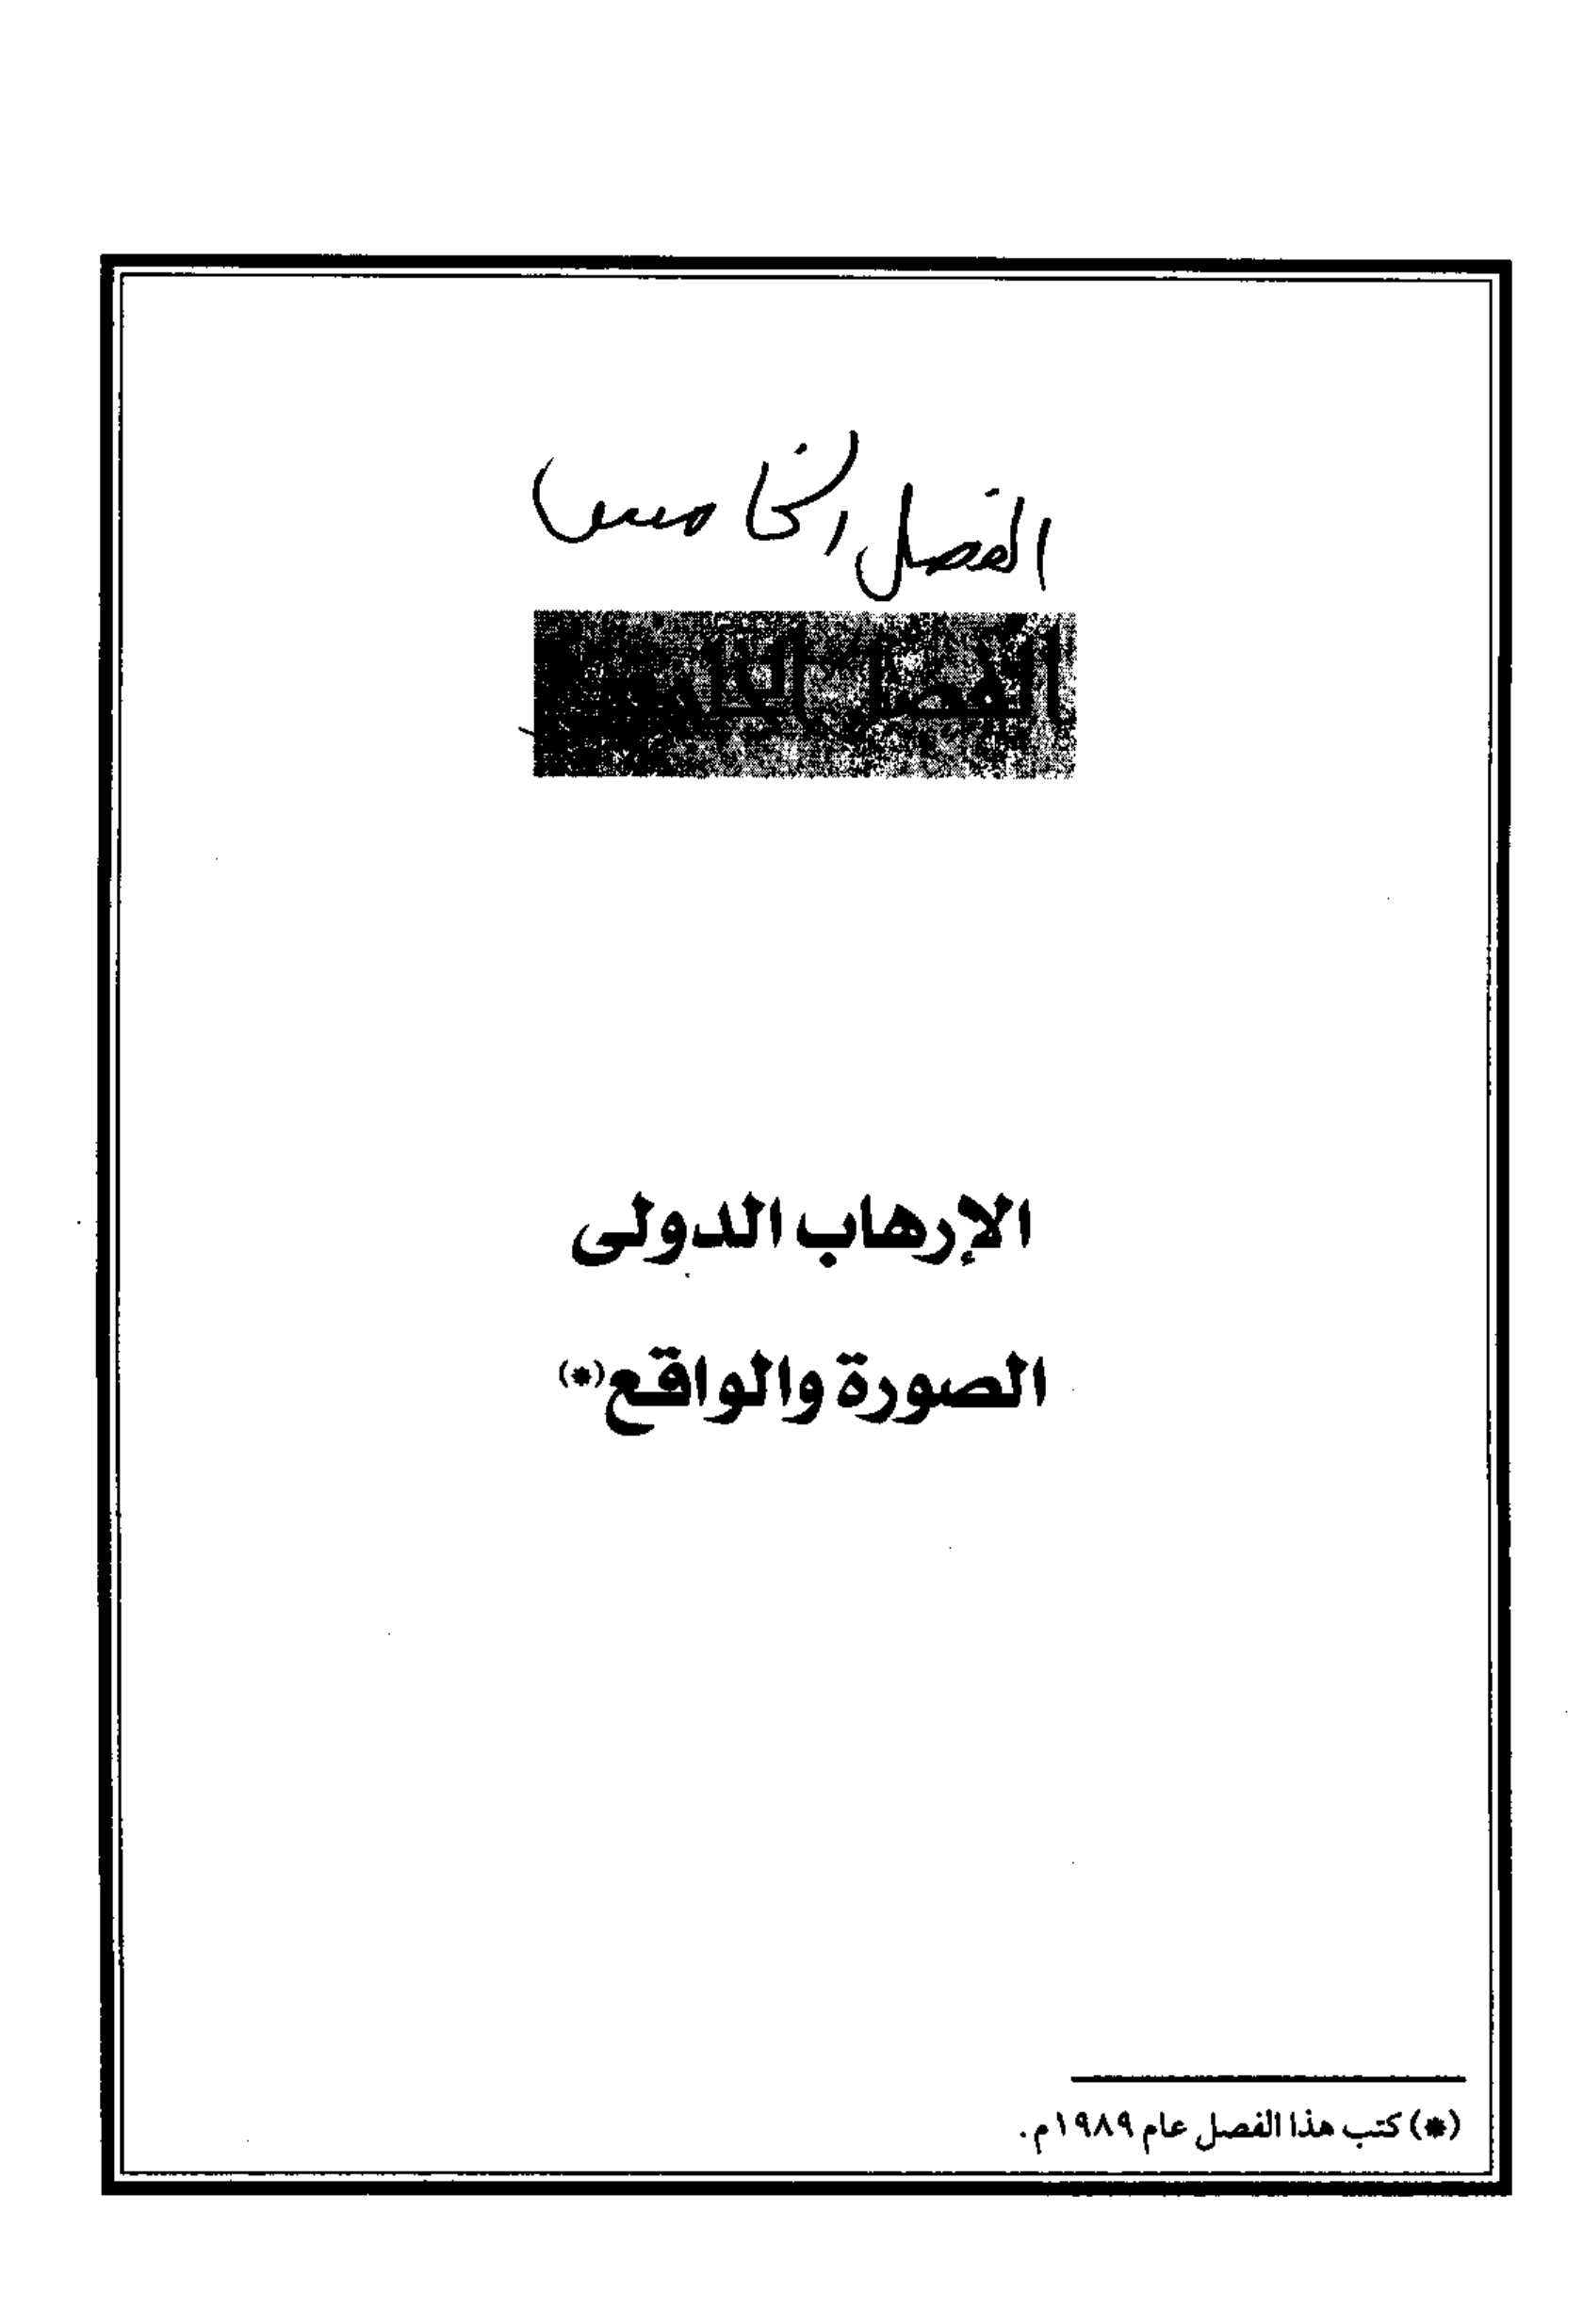 الفصل الخامس
الفصل الخامس
الإرهاب الدولى
الصورة والواقع(*)
(*) كتب هذا الفصل عام ١٩٨٩م.